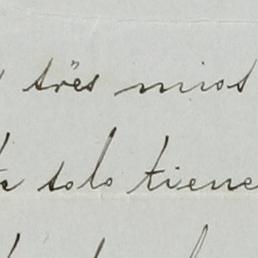 três mios
solo tiene